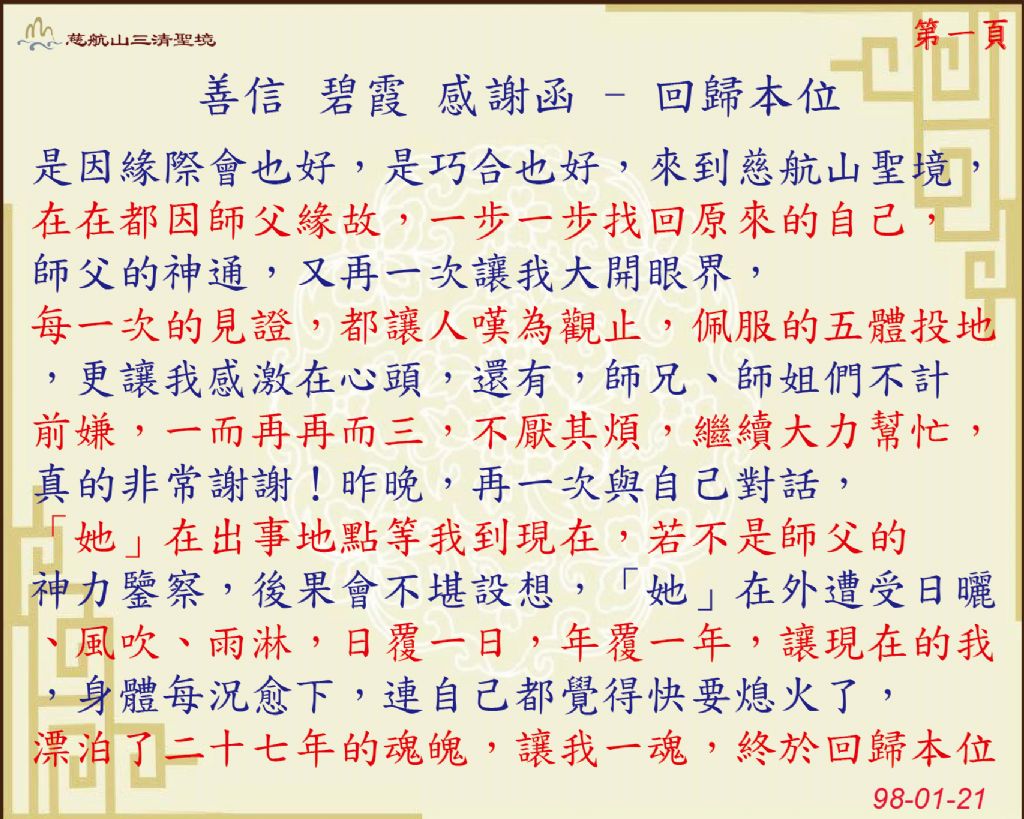 慈航山三清聖境
第一頁
善信 碧霞 感謝函 - 回歸本位
是因緣際會也好，是巧合也好，來到慈航山聖境，
在在都因師父緣故，一步一步找回原來的自己，
師父的神通，又再一次讓我大開眼界，
每一次的見證，都讓人嘆為觀止，佩服的五體投地
，更讓我感激在心頭，還有，師兄、師姐們不計
前嫌，一而再再而三，不厭其煩，繼續大力幫忙，
真的非常謝謝！昨晚，再一次與自己對話，
「她」在出事地點等我到現在，若不是師父的
神力鑒察，後果會不堪設想，「她」在外遭受日曬
、風吹、雨淋，日覆一日，年覆一年，讓現在的我
，身體每況愈下，連自己都覺得快要熄火了，
漂泊了二十七年的魂魄，讓我一魂，終於回歸本位
98-01-21